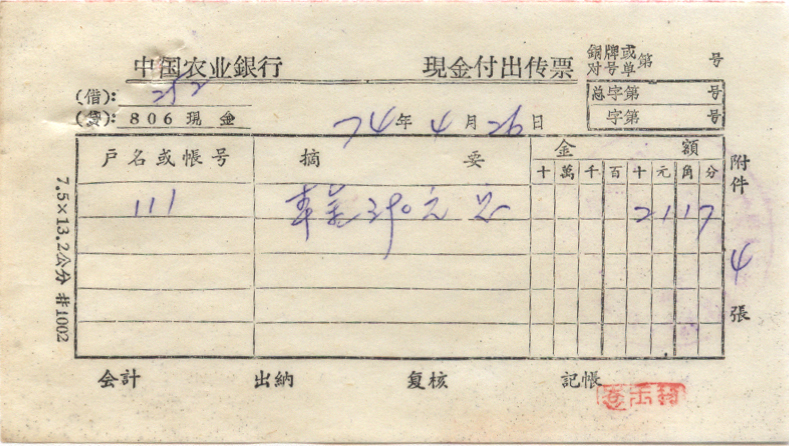 中国农业銀行 現金付出传票
銅牌或对号单第 号
(借): 252
(貸): 806 現 金
总字第 号
字第 号
74年4月26日
戶名或帳号 摘 要 金 額
十 萬 千 百 十 元 角 分
111 390元 2 1 1 7
附件 4 張
7.5×13.2公分 #1002
会計 出納 复核 記帳